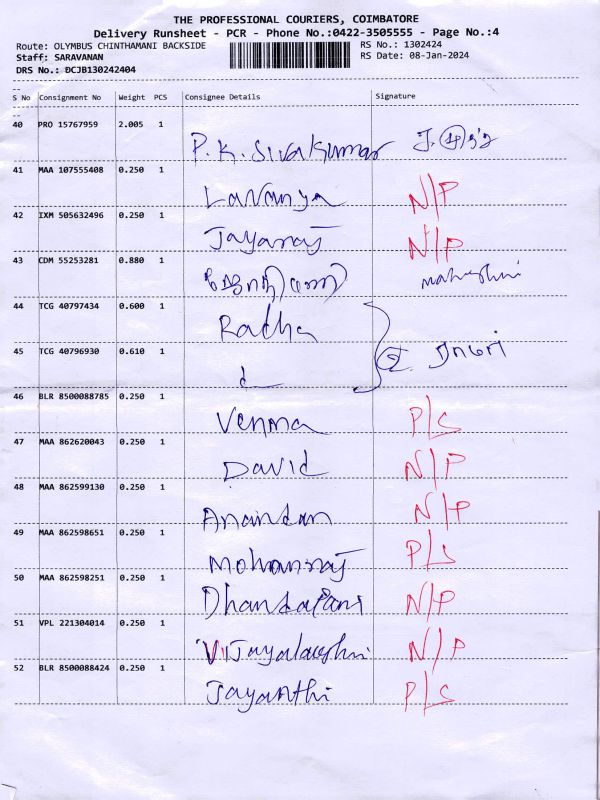 THE PROFESSIONAL COURIERS, COIMBATORE
Delivery Runsheet - PCR - Phone No.:0422-3505555 - Page No.:4
Route: OLYMBUS CHINTHAMANI BACKSIDE RS No.: 1302424
Staff: SARAVANAN RS Date: 08-Jan-2024
DRS No.: DCJB130242404
S No Consignment No Weight PCS Consignee Details Signature
40 PRO 15767959 2.005 1
P.K. Sivakumar
41 MAA 107555408 0.250 1
Lavanya N/P
42 IXM 505632496 0.250 1
Jayaraj N/P
43 CDM 55253281 0.880 1
44 TCG 40797434 0.600 1
Radha
45 TCG 40796930 0.610 1
46 BLR 8500088785 0.250 1
Venma P/S
47 MAA 862620043 0.250 1
David N/P
48 MAA 862599130 0.250 1
Anandan N/P
49 MAA 862598651 0.250 1
Mohanraj P/S
50 MAA 862598251 0.250 1
Dhandapani N/P
51 VPL 221304014 0.250 1
Vijayalaxshmi N/P
52 BLR 8500088424 0.250 1
Jayanthi P/S